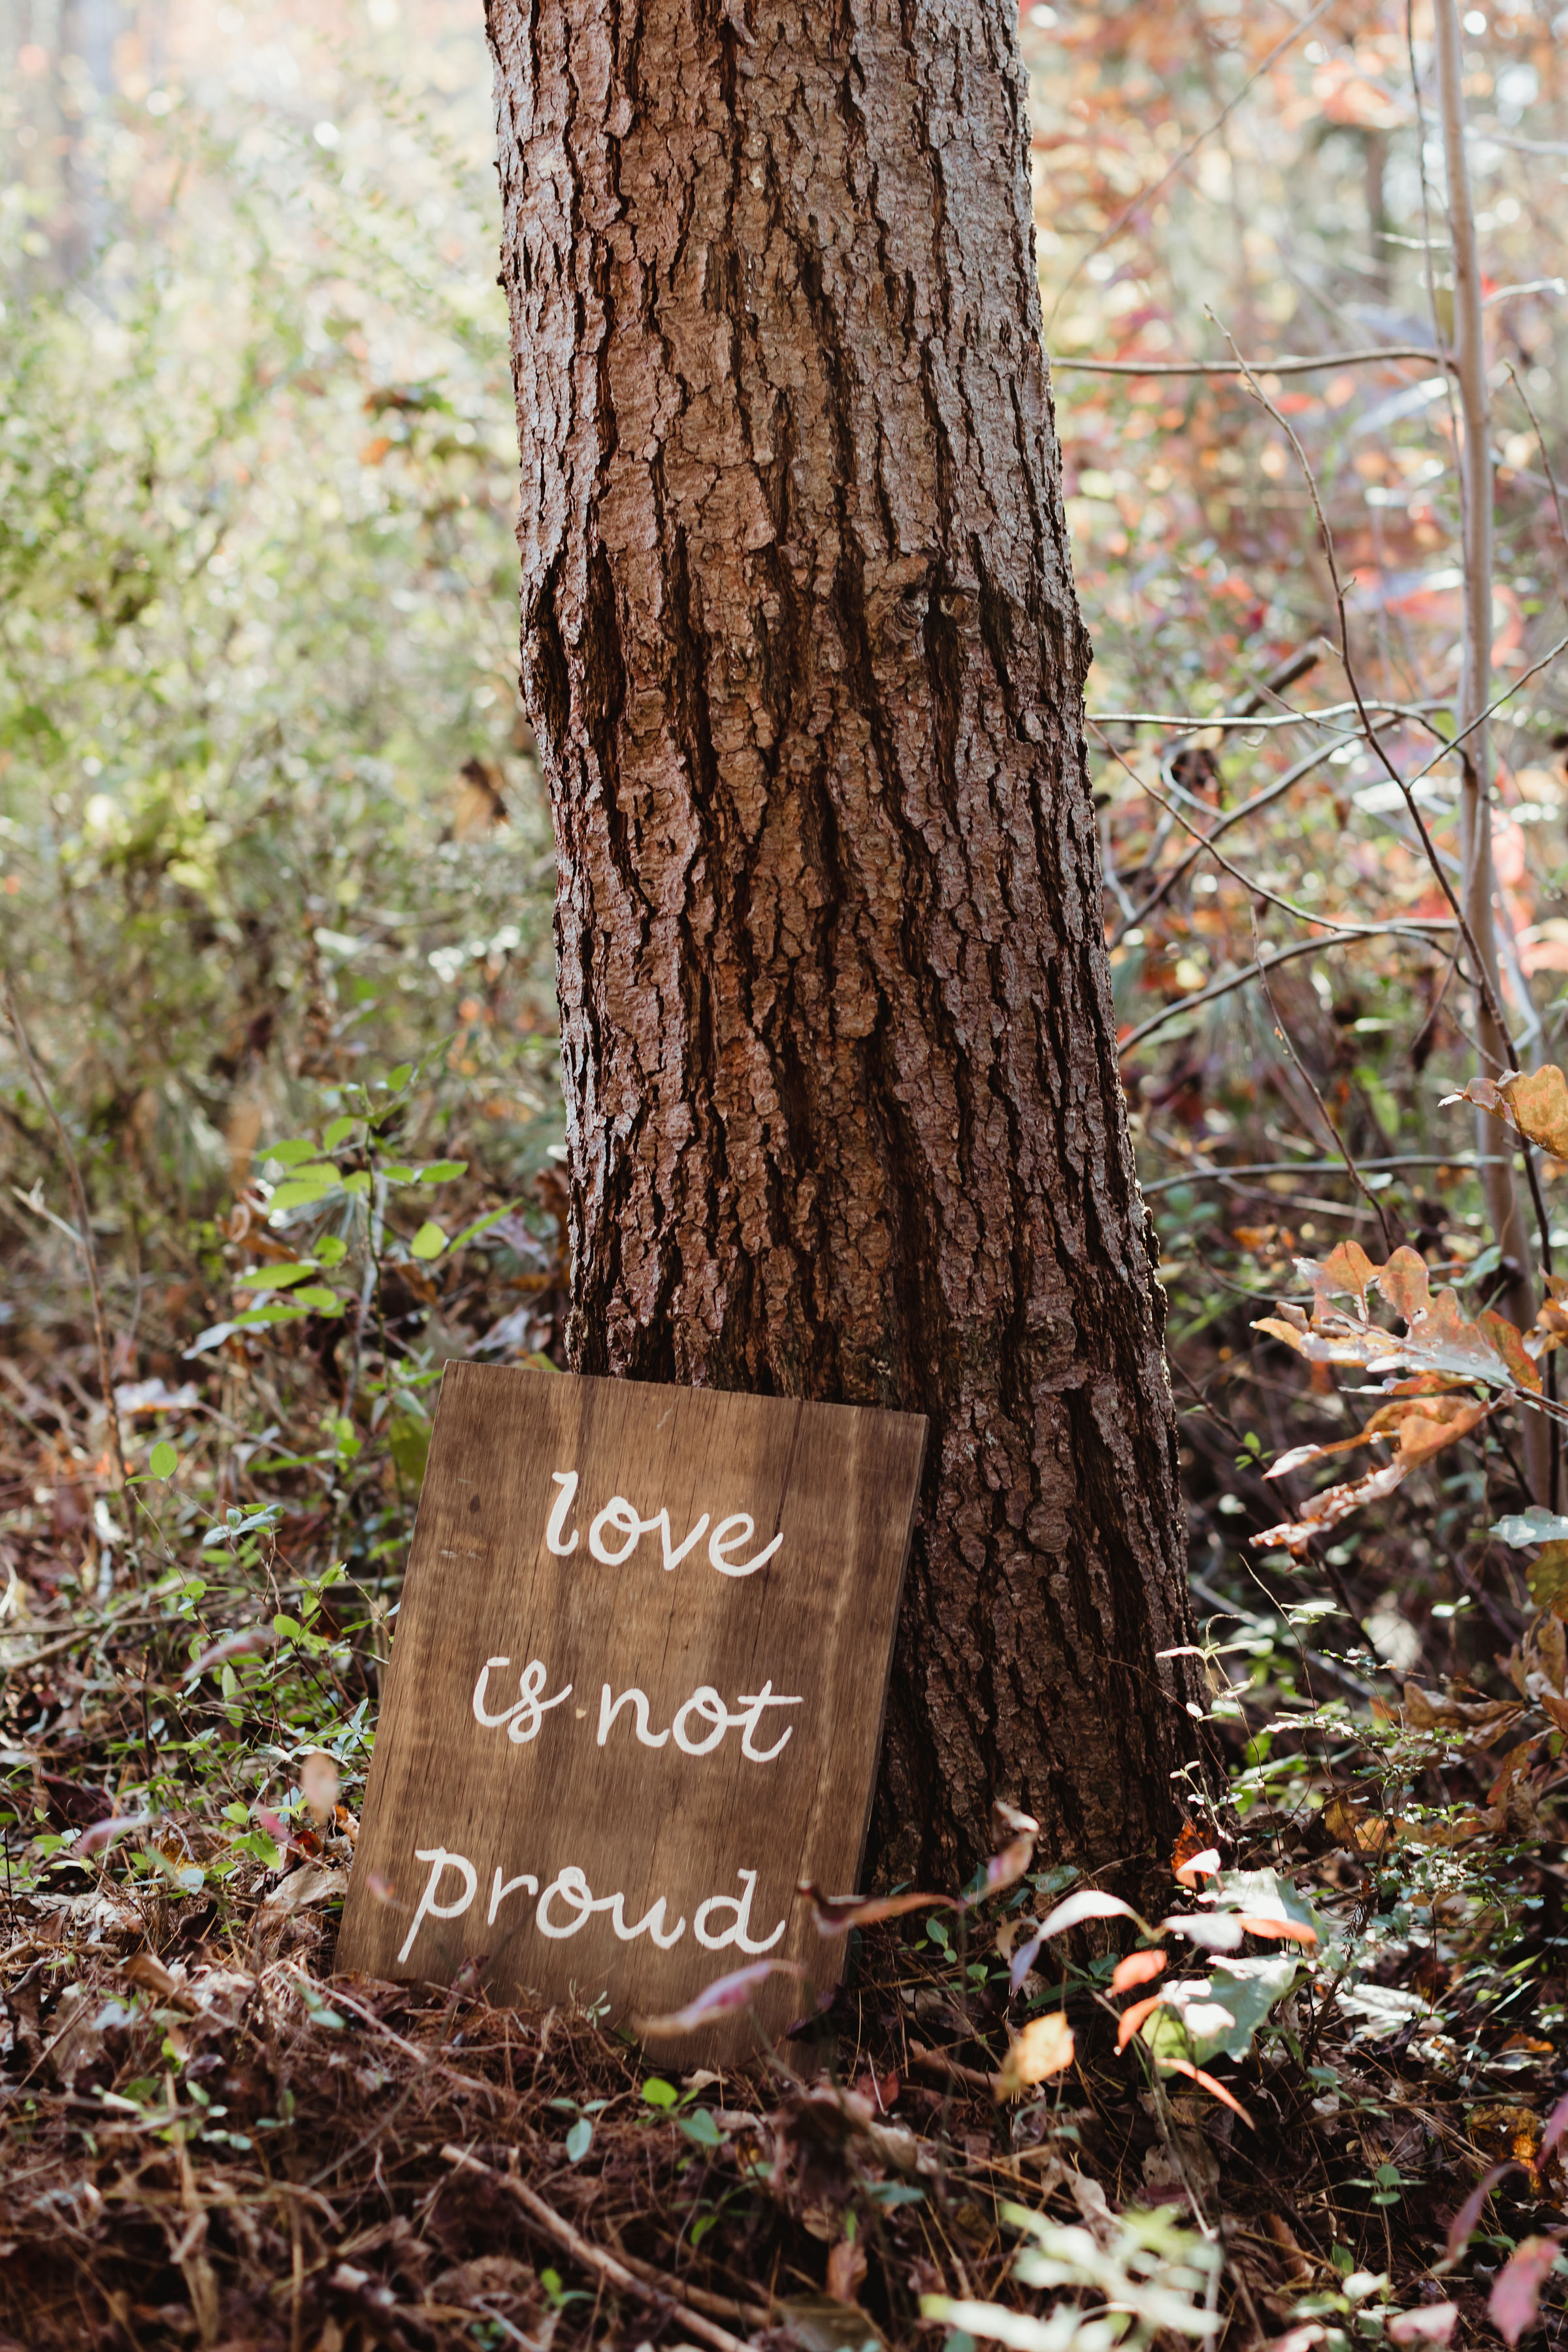 love
is not
proud